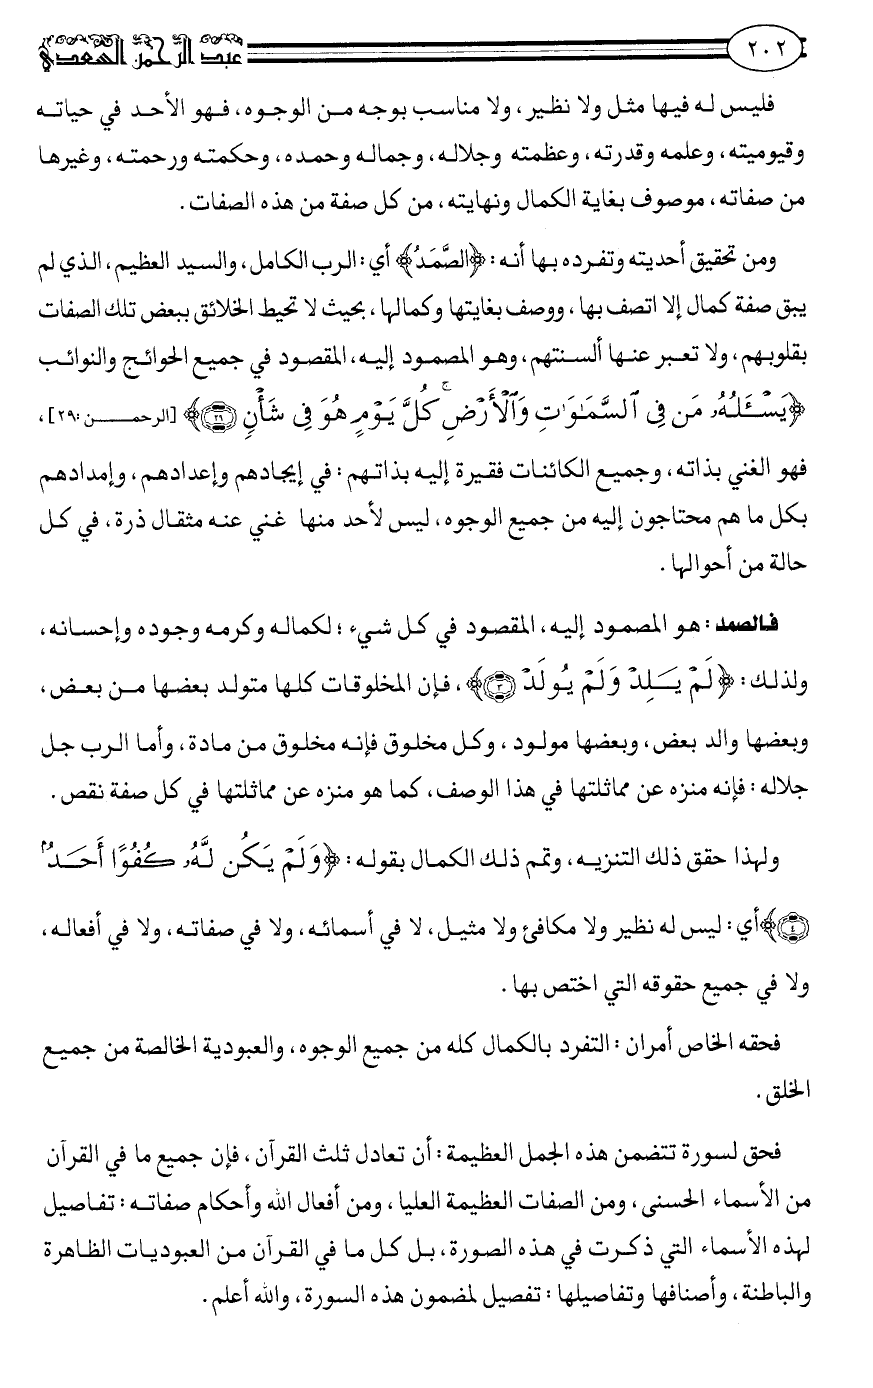 ٢٠٢
عبد الرحمن السعدي
فليس له فيها مثل ولا نظير، ولا مناسب بوجه من الوجوه، فهو الأحد في حياته
وقيوميته، وعلمه وقدرته، وعظمته وجلاله، وجماله وحمده، وحكمته ورحمته، وغيرها
من صفاته، موصوف بغاية الكمال ونهايته، من كل صفة من هذه الصفات.
ومن تحقيق أحديته وتفرده بها أنه: ﴿الصَّمَدُ﴾ أي: الرب الكامل، والسيد العظيم، الذي لم
يبق صفة كمال إلا اتصف بها، ووصف بغايتها وكمالها، بحيث لا تحيط الخلائق ببعض تلك الصفات
بقلوبهم، ولا تعبر عنها ألسنتهم، وهو المصمود إليه، المقصود في جميع الحوائج والنوائب
﴿يَسْـَٔلُهُۥ مَن فِى ٱلسَّمَـٰوَٰتِ وَٱلْأَرْضِ ۚ كُلَّ يَوْمٍ هُوَ فِى شَأْنٍ ٢٩﴾ [الرحمن:٢٩]،
فهو الغني بذاته، وجميع الكائنات فقيرة إليه بذاتهم: في إيجادهم وإعدادهم، وإمدادهم
بكل ما هم محتاجون إليه من جميع الوجوه، ليس لأحد منها غني عنه مثقال ذرة، في كل
حالة من أحوالها.
فالصمد: هو المصمود إليه، المقصود في كل شيء؛ لكماله وكرمه وجوده وإحسانه،
ولذلك: ﴿لَمْ يَلِدْ وَلَمْ يُولَدْ ٣﴾، فإن المخلوقات كلها متولد بعضها من بعض،
وبعضها والد بعض، وبعضها مولود، وكل مخلوق فإنه مخلوق من مادة، وأما الرب جل
جلاله: فإنه منزه عن مماثلتها في هذا الوصف، كما هو منزه عن مماثلتها في كل صفة نقص.
ولهذا حقق ذلك التنزيه، وتمم ذلك الكمال بقوله: ﴿وَلَمْ يَكُن لَّهُۥ كُفُوًا أَحَدٌۢ
٤﴾ أي: ليس له نظير ولا مكافئ ولا مثيل، لا في أسمائه، ولا في صفاته، ولا في أفعاله،
ولا في جميع حقوقه التي اختص بها.
فحقه الخاص أمران: التفرد بالكمال كله من جميع الوجوه، والعبودية الخالصة من جميع
الخلق.
فحق لسورة تتضمن هذه الجمل العظيمة: أن تعادل ثلث القرآن، فإن جميع ما في القرآن
من الأسماء الحسنى، ومن الصفات العظيمة العليا، ومن أفعال الله وأحكام صفاته: تفاصيل
لهذه الأسماء التي ذكرت في هذه الصورة، بل كل ما في القرآن من العبوديات الظاهرة
والباطنة، وأصنافها وتفاصيلها: تفصيل لمضمون هذه السورة، والله أعلم.